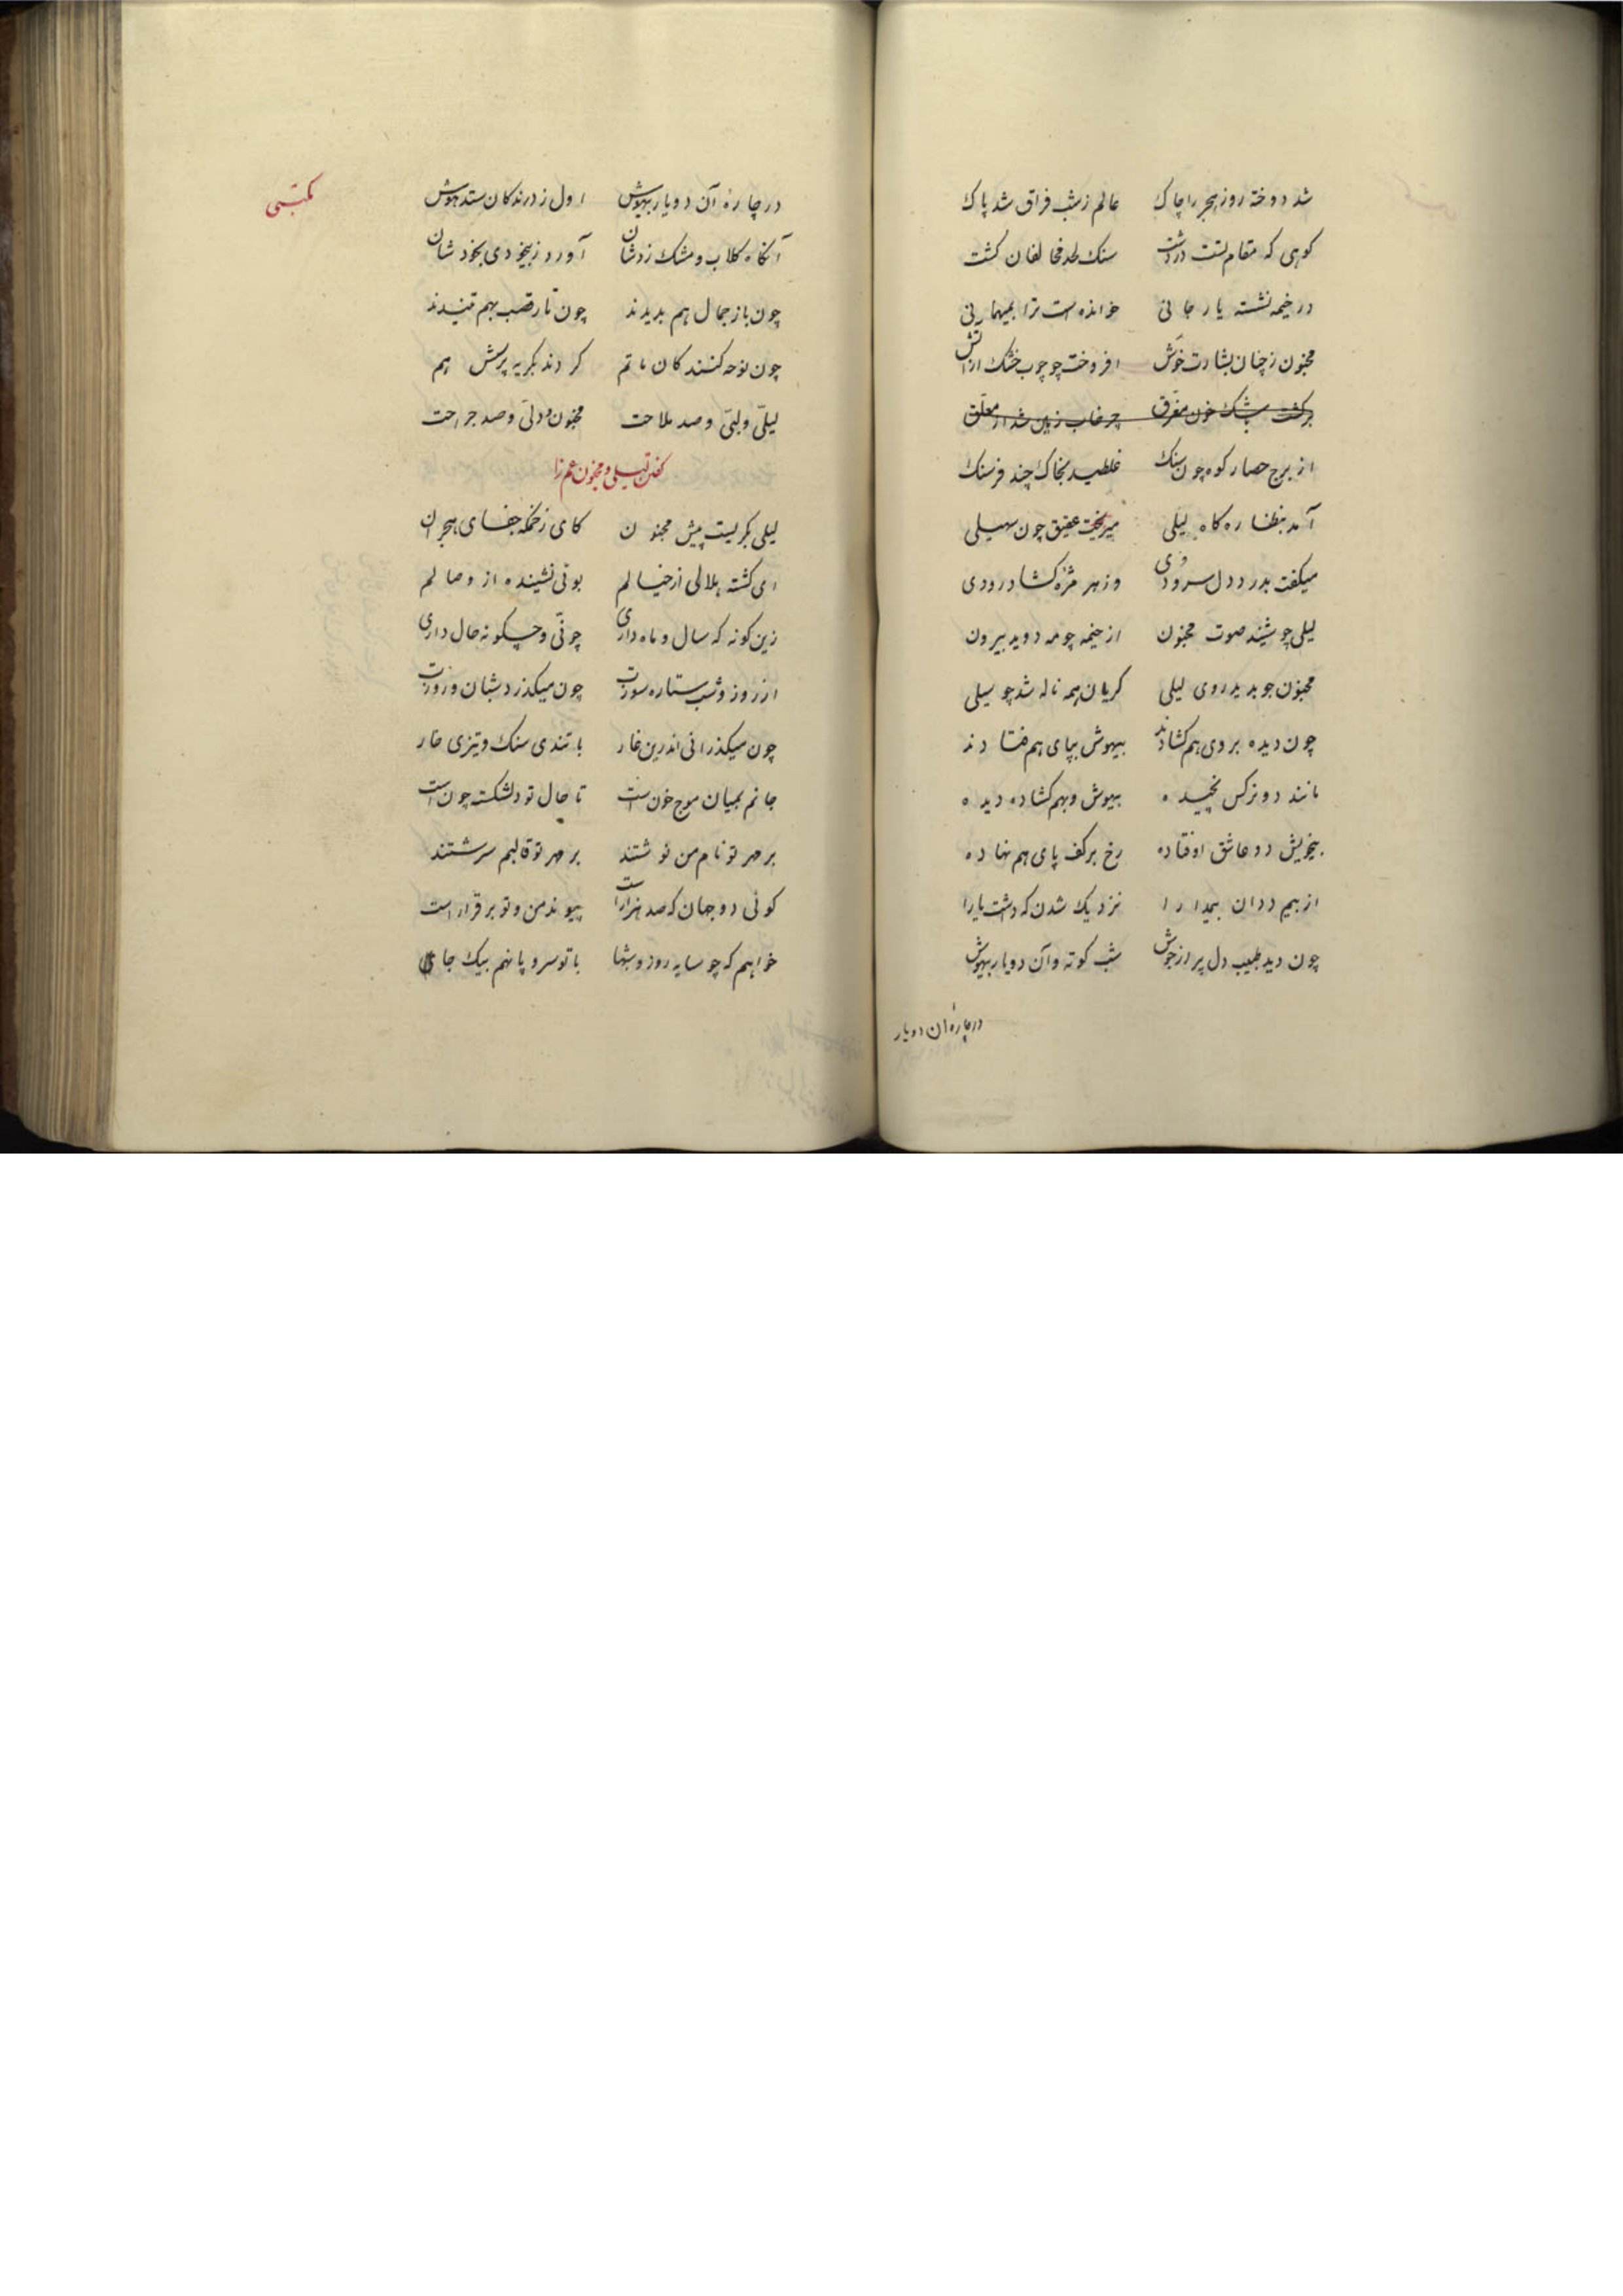 شد دوخته روز هجر را چاک عالم ز شب فراق شد پاک
کوهی که مقام تست در دشت سنک لحد مخالفان کشت
در خیمه نشسته یار جانی خوانده است ترا بمیهمانی
مجنون ز چنان بشارت خوش افروخت چو چوب خشک از آتش
برکشت بشک خون مغرق چرخاب زمین شد از معلق
از برج حصار کوه چون سنک غلطید بخاک چند فرسنک
آمد بنظاره کاه لیلی میریخت عقیق چون سهیلی
میکفت بدرد دل سرودی وز هر مژه کشاد رودی
لیلی چو شنید صوت مجنون از خیمه چو مه دوید بیرون
مجنون جو بدید روی لیلی کریان همه ناله شد چو سیلی
چون دیده بروی هم کشادند بیهوش بپای هم فتادند
مانند دو نرکس نخچیده بیهوش و بهم کشاده دیده
بیخویش دو عاشق اوفتاده رخ بر کف پای هم نهاده
از بیم ددان بیدا را نزدیک شدن که داشت یارا
چون دید طبیب دل پر از جوش شب کوته وآن دو یار بیهوش
در چاره آن دو یار
مکتبی
در چارهٔ آن دو یار بیهوش اول ز درندکان ستد هوش
آنکاه کلاب و مشک زدشان آورد ز بیخودی بخود شان
چون باز جمال هم بدیدند چون تار قصب بهم تنیدند
چون نوحه کنندکان ماتم کردند بکریه پرسش هم
لیلی و لبی و صد ملاحت مجنون و دلی و صد جراحت
کفتن لیلی و مجنون غم را
لیلی بکریست پیش مجنون کای زخمکه جفای هجران
ای کشته هلالی از خیالم بوئی نشینده از وصالم
زین کونه که سال و ماه داری چونی و چکونه حال داری
از روز و شب ستاره سوزت چون میکذرد شبان و روزت
چون میکذرانی اندرین غار با تندی سنک و تیزی خار
جانم بمیان موج خون است تا حال تو دلشکسته چون است
بر مهر تو نام من نوشتند بر مهر تو قالبم سرشتند
کوئی دو جهان که صد هزار است پیوند من و تو برقرار است
خواهم که چو سایه روز و شبها با تو سر و پا نهم بیک جای